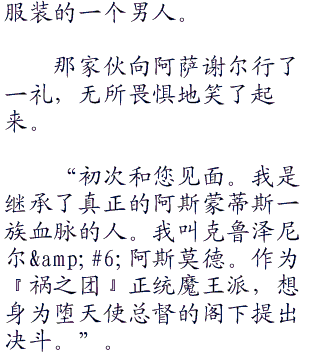 服装的一个男人。
那家伙向阿萨谢尔行了
一礼，无所畏惧地笑了起
来。
“初次和您见面。我是
继承了真正的阿斯蒙蒂斯一
族血脉的人。我叫克鲁泽尼
尔&amp;#6;阿斯莫德。作为
『祸之团』正统魔王派，想
身为堕天使总督的阁下提出
决斗。”。